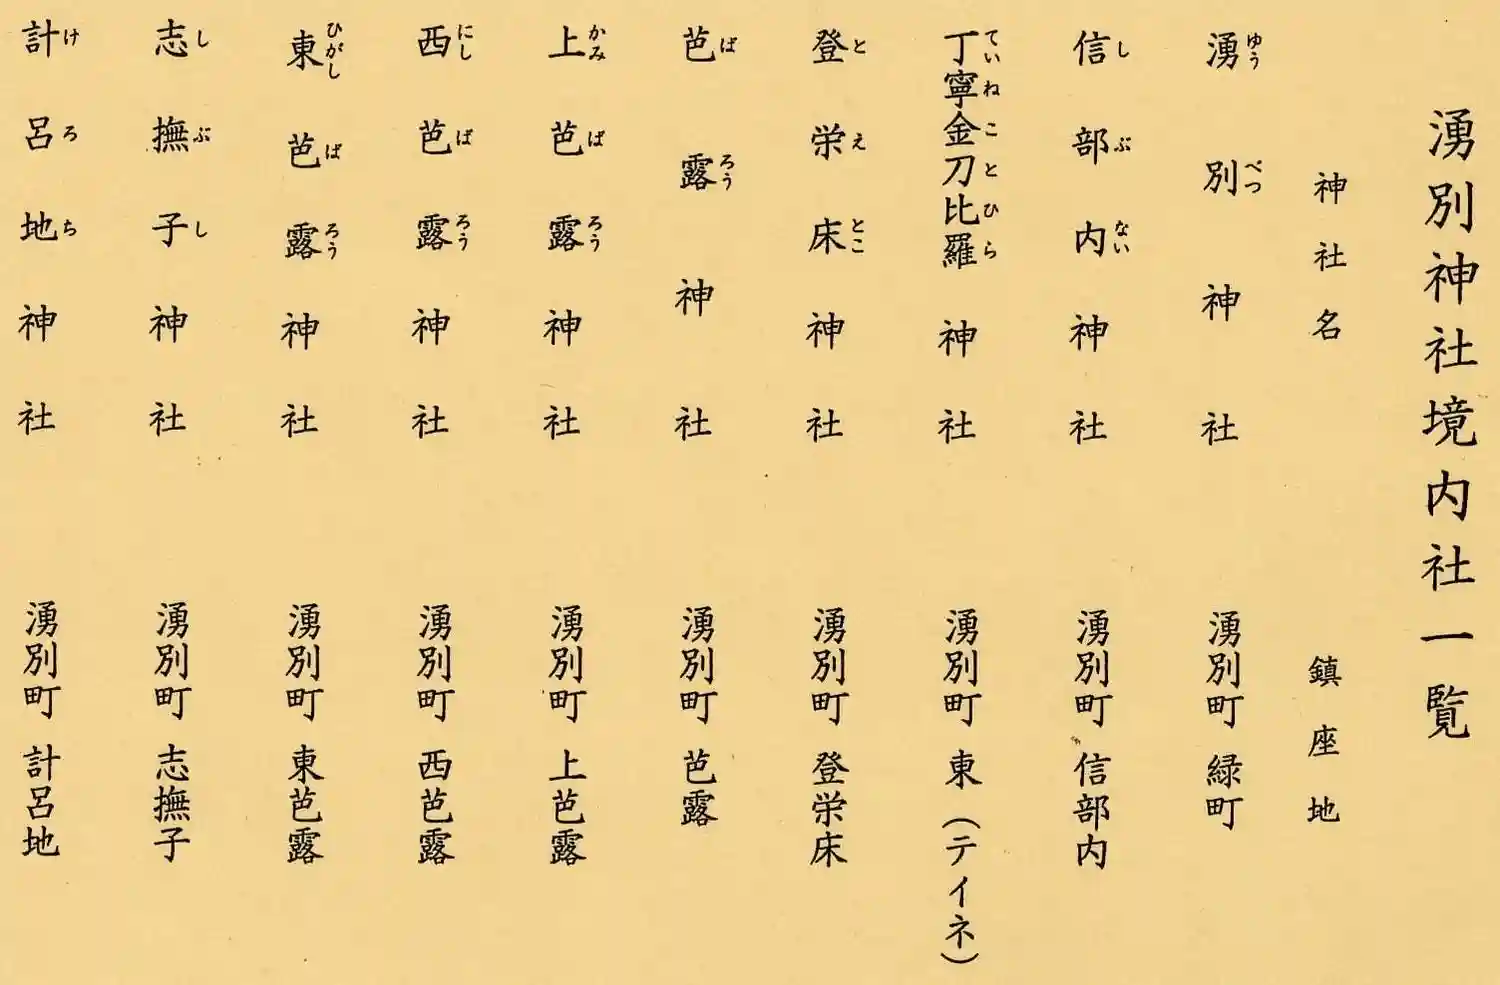 湧別神社境内社一覧
神社名 鎮座地
湧別神社 湧別町 緑町
ゆうべつ
信部内神社 湧別町 信部内
しぶない
丁寧金刀比羅神社 湧別町 東(テイネ)
ていねことひら
登栄床神社 湧別町 登栄床
とえとこ
芭露神社 湧別町 芭露
ばろう
上芭露神社 湧別町 上芭露
かみばろう
西芭露神社 湧別町 西芭露
にしばろう
東芭露神社 湧別町 東芭露
ひがしばろう
志撫子神社 湧別町 志撫子
しぶし
計呂地神社 湧別町 計呂地
けろち